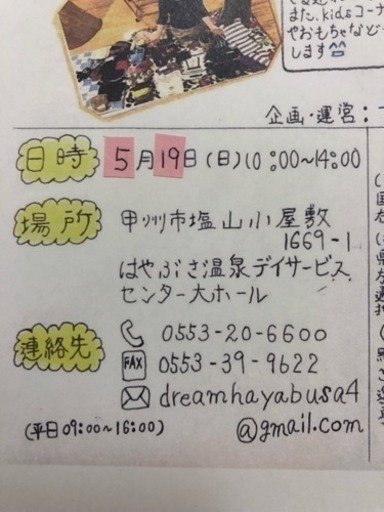 また、kidsコーナ
やおもちゃなど
します
企画・運営：
日時 5月19日(日)10:00~14:00
場所 甲州市塩山小屋敷
1669-1
はやぶさ温泉デイサービス
センター大ホール
連絡先 0553-20-6600
FAX 0553-39-9622
dreamhayabusa4
(平日09:00~16:00) @gmail.com